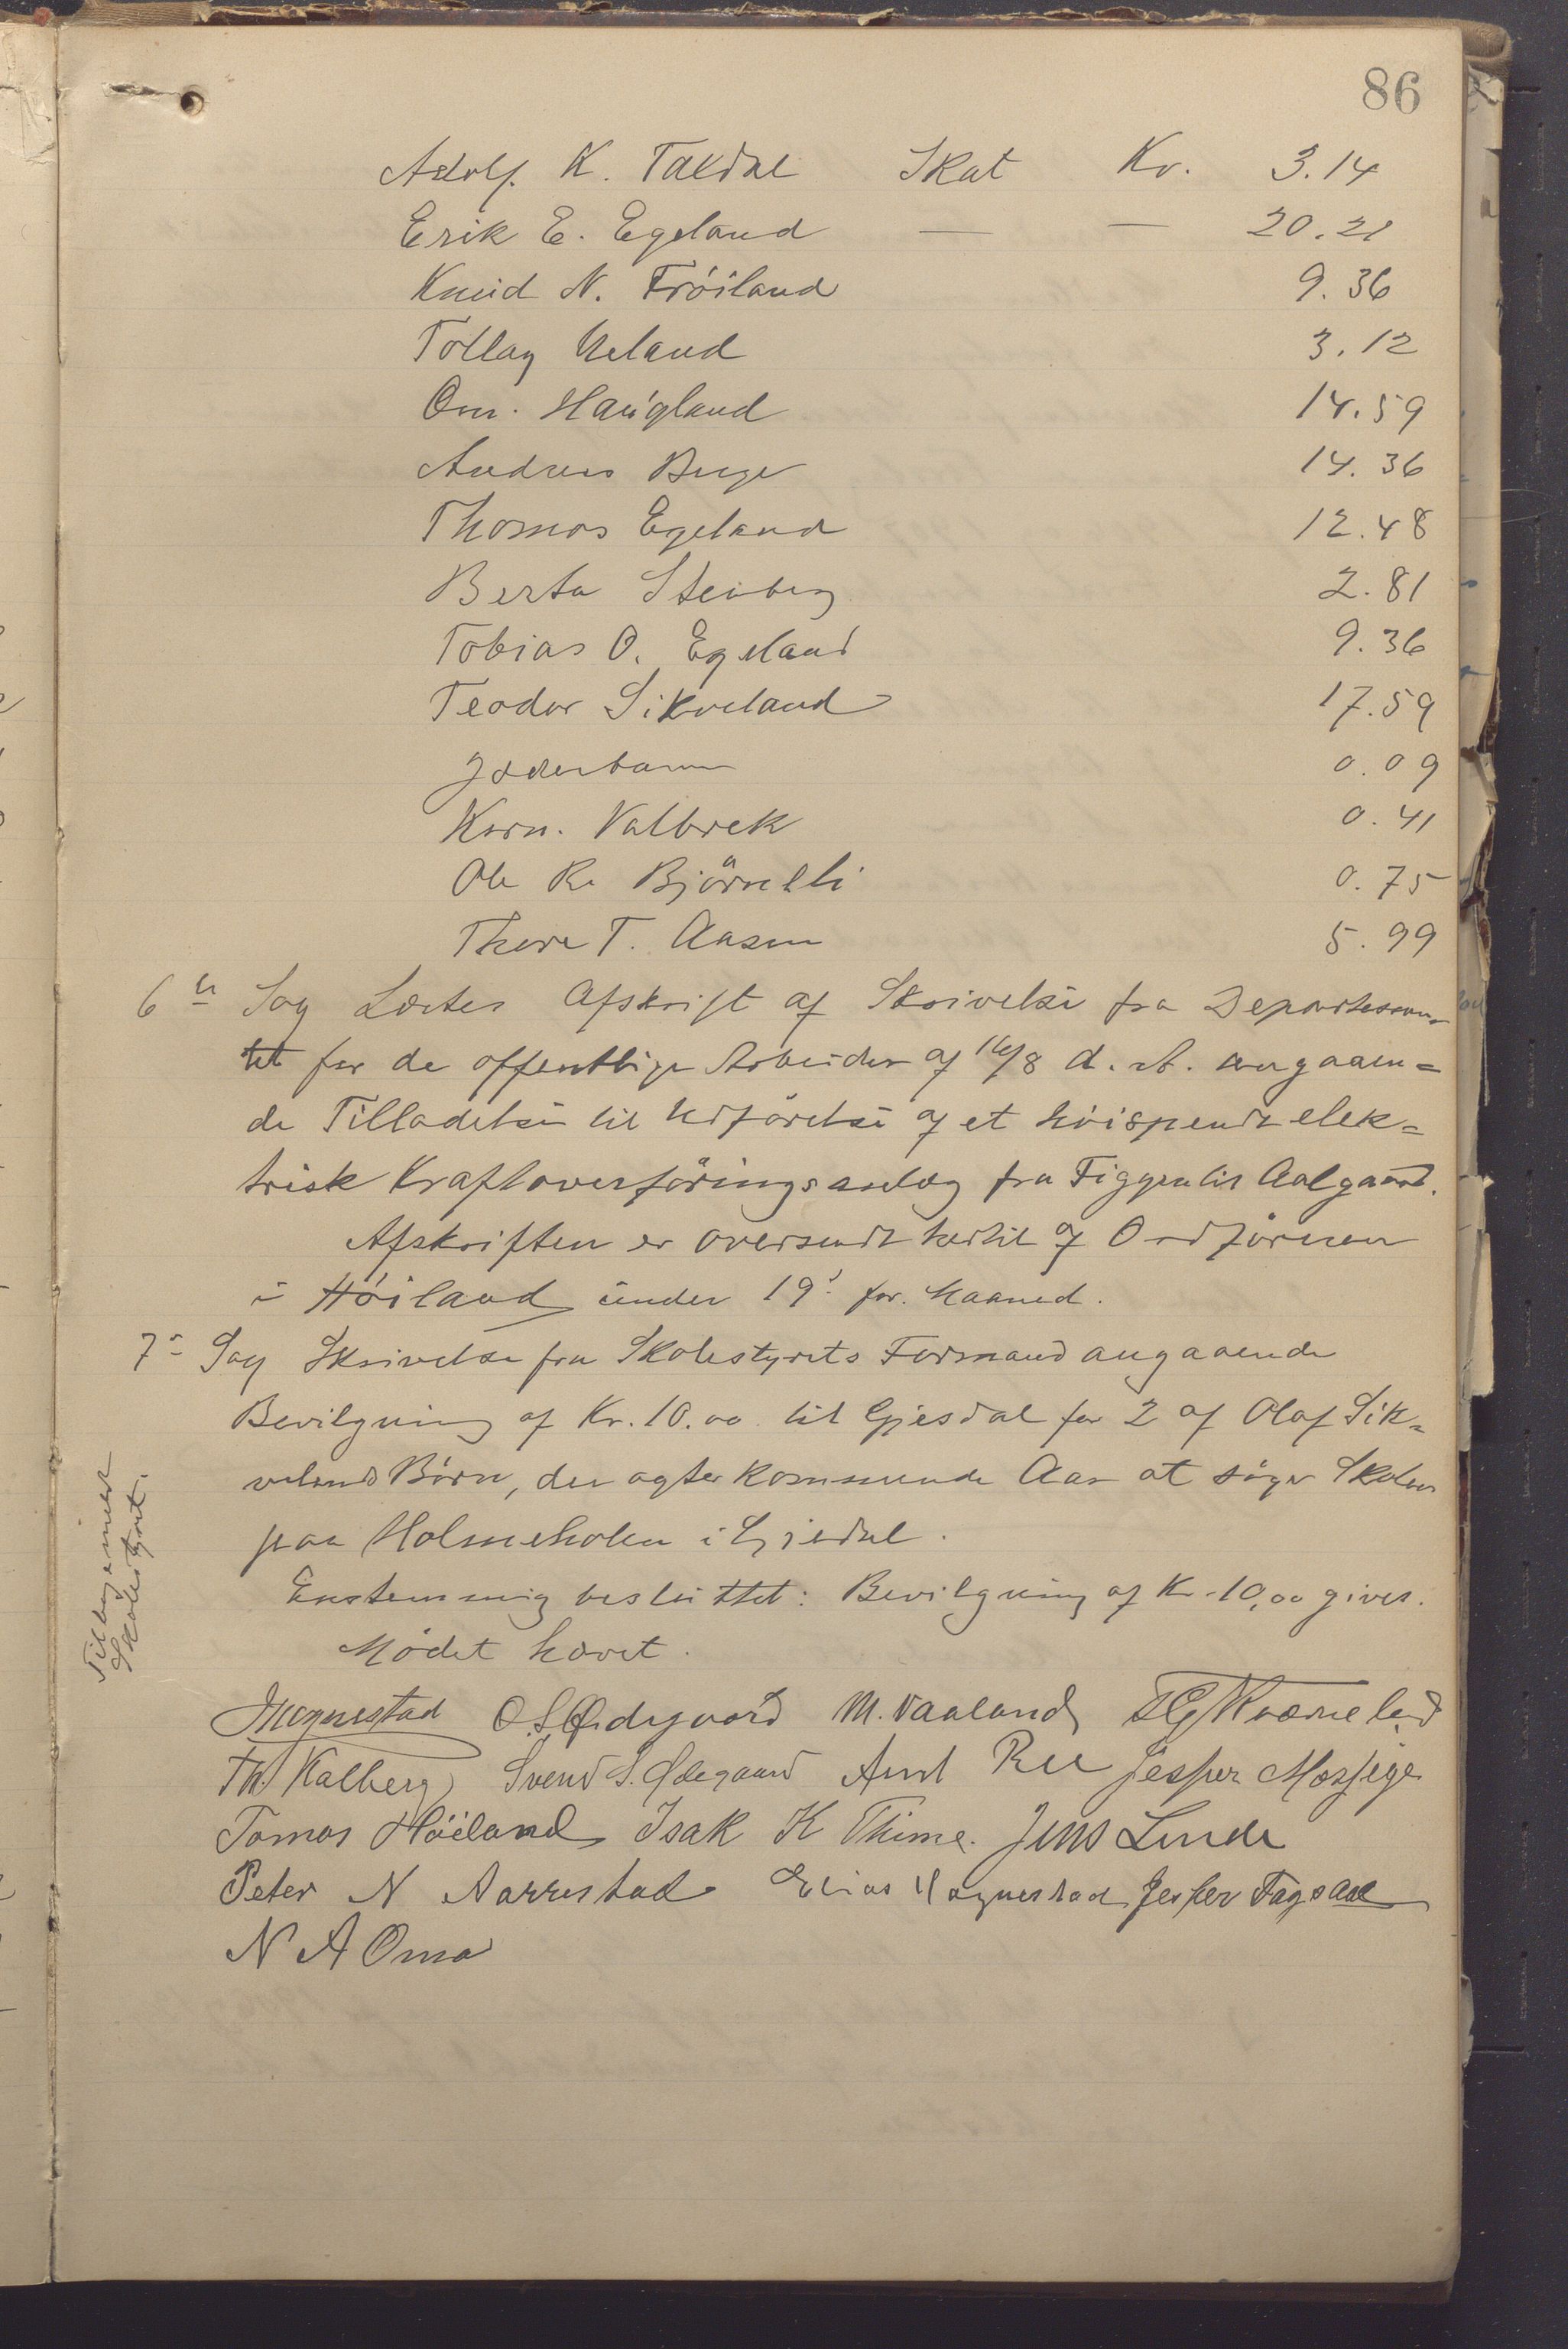 86
Adolf. K. Taxdal Skat Kr. 3.14
Erik E. Egeland — — 20.21
Knud N. Fröiland 9.36
Tollag Ueland 3.12
Om. Haugland 14.59
Andreas Berge 14.36
Thomas Egeland 12.48
Berta Stenberg 2.81
Tobias O. Egeland 9.36
Teodor Sikveland 17.59
Jæderbanen 0.09
Korn. Valbrek 0.41
Ole R. Björnesli 0.75
Thore T. Aasen 5.99
6te Sag Læstes Afskrift af Skrivelse fra Departemen-
tet for de offentlige Arbeider af 16/8 d. A. angaaen=
de Tilladelse til Udförelse af et höispendt elek=
trisk Kraftoverföringsanlæg fra Figgen til Aalgaard.
Afskriften er oversendt hertil af Ordföreren
i Höiland under 19' for. Maaned.
7- Sag Skrivelse fra Skolestyrets Formand angaaende
Bevilgning af Kr. 10.00 til Gjesdal for 2 af Olaf Sik=
velands Börn, der agter kommende Aar at söge Skolen
paa Holmeskolen i Gjesdal.
Enstemmig besluttet: Bevilgning af Kr. 10,00 gives.
Mödet hævet.
Tilbagemeldt
Skolestyret.
JMognestad O. S. Ødegaard M. Vaaland TG Kværneland
Th. Kalberg Svend S. Ødegaard Arnt Ree Jesper Mossige
Tomas Höiland Isak K Thime. Jens Lende
Peter N Aarrestad Elias Mognestad Jesper Fagaase
N A Oma